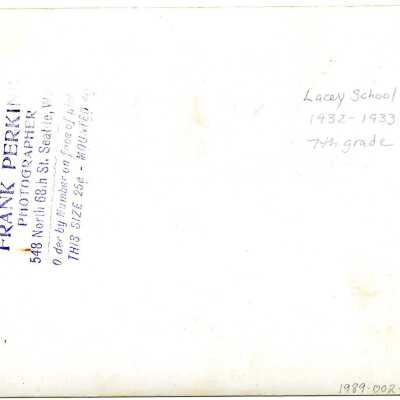 FRANK PERKIN
PHOTOGRAPHER
548 North 68th St. Seattle, W
Order by Number on face of
THIS SIZE 25¢ - MOUNTED
Lacey School
1932-1933
7th grade
1989-002-